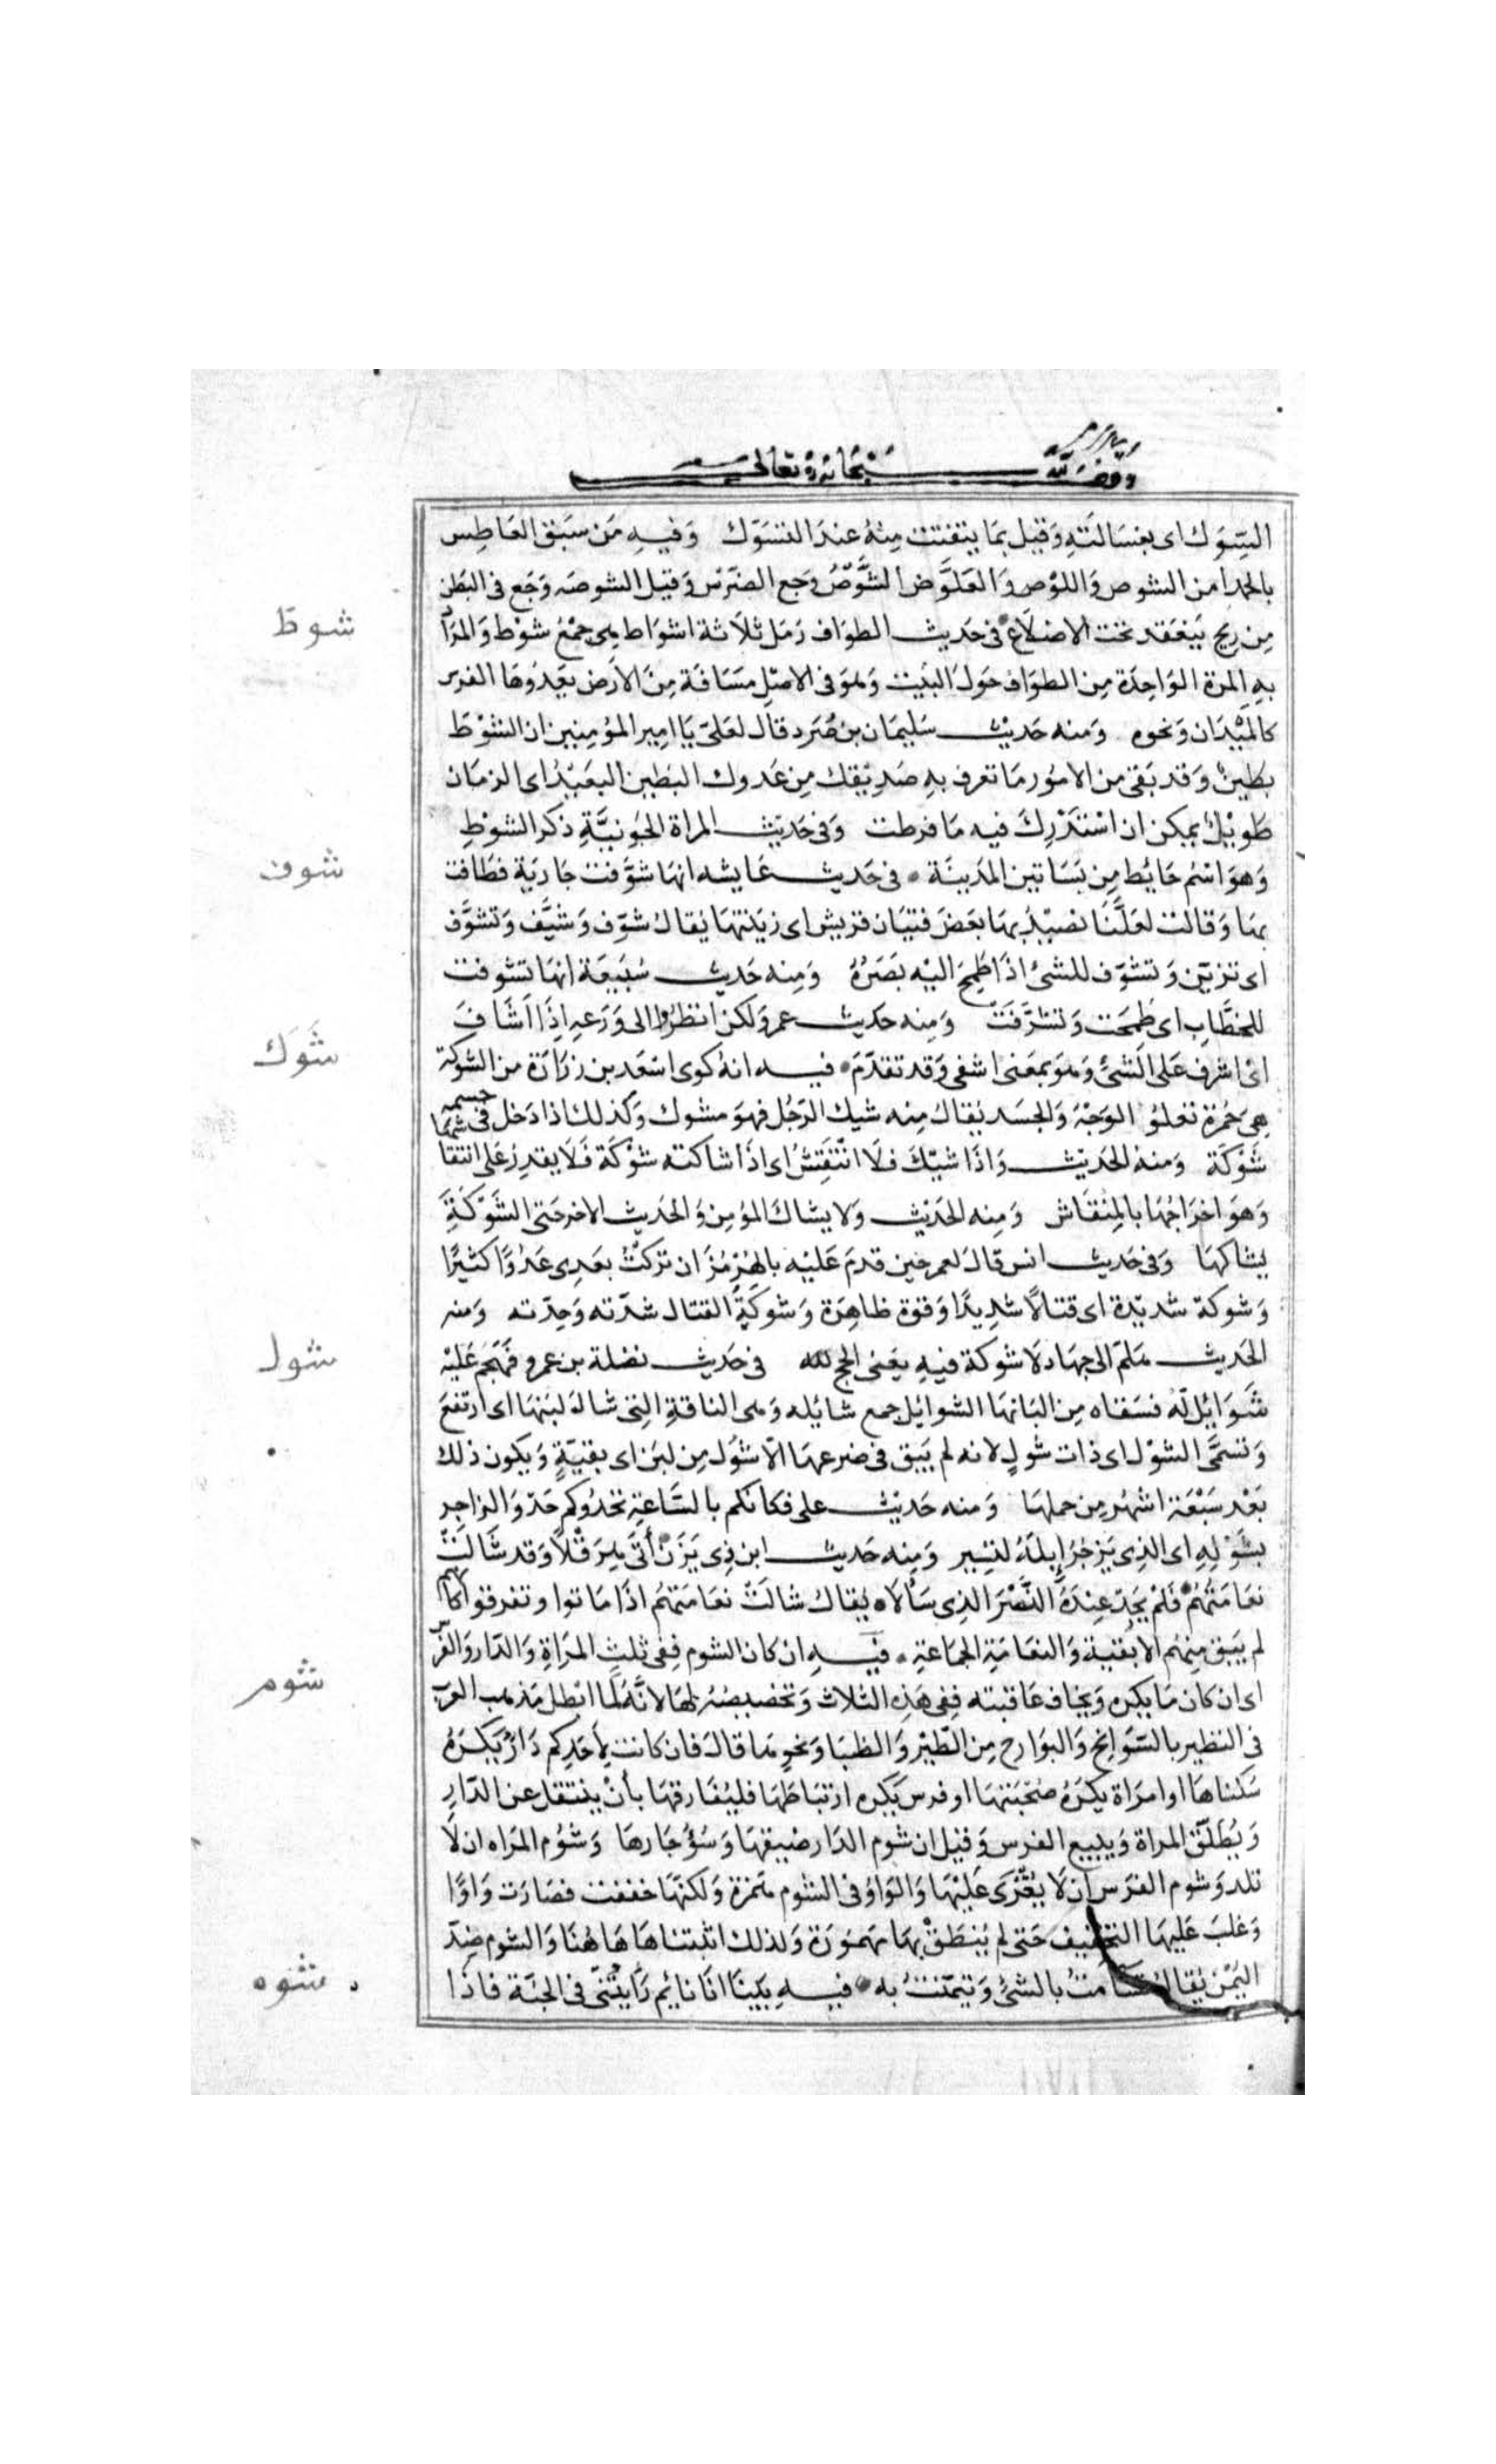 وقف لله سبحانه وتعالى
السِّوَك اى بغسَالَتهِ وَقيل بمَا يتفتت مِنهُ عندَ التسَوّك وَفيهِ مَن سَبَق العَاطِس
بالحمد امن الشوص وَاللوْص وَالعَلوَّض الشَّوْصُ وَجع الضرَس وَقيل الشوصَه وَجَع فى البَطن
مِن رِيح يَنعَقد تحت الاضلاَع فى حَديث الطوَاف رَمَل ثلاَثة اشوَاط هى جمْعُ شوْط وَالمرَاد
بهِ المرة الوَاحِدَة مِن الطوَاف حَولَ البَيت وَهوَ فى الاصْل مسَافَة مِنَ الاَرض يَعدُوهَا الفرس
كالميْدَان وَنحوه وَمنه حَديث سُليمَان بن صُرَد قال لعَلىّ يَا امِير المؤمِنين ان الشوْطَ
بَطِينٌ وَقد بَقىَ من الامُور مَا تعرف بهِ صَدِيقك مِن عَدوك البَطين البعَيدُ اى الزمَان
طَويْل يمكن ان اسْتَدْرِكَ فيه مَا فرطت وَفى حَديث المراة الجَونِيَّةِ ذكر الشوْطِ
وَهوَ اسْمُ حَائِط مِن بَسَاتين المَدينَة فى حَديث عَايشه انهَا شوَّفت جَارية فطَافت
بهَا وَقالت لعَلَّنَا نصيْدُ بهَا بَعضَ فتيَان قريش اى زيَنتهَا يُقالُ شوّف وَشيَّف وَتشوَّف
اى تزيّن وَتشوّف للشئ اذَا طَمحَ اليْه بَصَرُهُ وَمِنه حَديث سُبَيعَة انهَا تشوفت
للخطَّاب اى طَمحَت وَتشرَّفَتْ وَمِنه حَديث عمر وَلكن انظرُوا الى وَرَعِهِ اِذَا اَشَافَ
اىْ اشرف عَلى الشئ وَهوَ بمعَنى اشفى وَقد تقدّمَ فيه انهُ كوى اسْعَد بن زرَارَة من الشوكة
هِىَ حُمرَة تعلوُ الوَجْهَ وَالجسَد يُقالُ مِنه شيك الرَجُل فهوَ مشوك وَكذلك اذا دَخل فى جسمه
شَوْكَة وَمنهُ الحَديْث وَاذَا شيْكَ فلاَ انْتقَشَ اى اذَا شاكته شوْكَة فَلاَ يقدِرُ عَلى انتقا
وَهوَ اخرَاجُهَا بالمِنْقَاش وَمِنه الحَديْث وَلا يشاك المؤمِن وَالحَديث الاخر حَتى الشَّوْكَةَ
يشاكهَا وَفى حَديث انس قالَ لعمر حِين قدمَ عَليْه بالهُرمُزَان تركْتُ بعَدِى عَدُوًّا كثيرًا
وَشوكة شديْدة اى قتالاً شديدًا وَقوة ظاهِرَة وَشوكَةُ القتال شدّته وَحِدّته وَمنه
الحَديث هَلمّ الى جهَاد لاَ شوكَة فيهِ يَعنى الحج فى حَديث نضلة بن عمرو فهَجَمَ عَليْهِ
شَوَايُل لَهُ فسَقاه مِن البَانهَا الشوايل جمع شائله وَهى الناقةِ التِى شالَ لبَنهَا اى ارتفعَ
وَتسمَّى الشوْل اى ذات شولٍ لانه لم يَبق فى ضرعهَا الّا شوْل مِن لبَن اى بقيَّةٍ وَيكون ذلك
بَعْد سَبْعَة اشهُر مِن حملهَا وَمنه حَديْث على فكانكم بالسَّاعَةِ تحْدُوكم حَدْوَ الزاجر
بشَوْلِهِ اى الذِى يَزجرُ اِبلَهُ لتسير وَمِنه حَديث ابن ذِى يَزَن أتَى هِرَقْلاً وَقد شَالَتْ
نعَامَتُهُمْ فَلَمْ يَجدْ عِندَهُ النَّصْرَ الذِى سَألاه يُقالُ شالَتْ نعَامَتهُم اذَا مَاتوا وتفرقوا كانهم
لم يَبق مِنهُم الا بَقية وَالنعَامَة الجمَاعَة فيه ان كان الشوم فِفى ثلثٍ المرَاةِ وَالدّار وَالفرس
اى ان كان مَا يكره وَيخاف عَاقبته فِفى هَذِه الثلاث وَتخصيصُهُ لهَا لانَّهُ لمَّا ابْطل مَذهَب العرب
فى التطير بالسَّوَانح وَالبَوَارح مِن الطيْر وَالظبَا وَنحوِهمَا قالَ فان كانت لاَحَدِكم دَارٌ يَكرَهُ
سَكناهَا او امرَاة يكرَهُ صُحْبَتهَا او فرس يكره ارتبَاطهَا فليُفَارقهَا بأنْ ينتقل عن الدّارِ
وَيُطَلِّق المراة وَيبيع الفرس وَقيْل ان شوم الدَار ضيقهَا وَسُوُ جَارهَا وَشوُم المرَاه ان لَا
تلد وَشوم الفرَس ان لَا يُغْزَى عَليْهَا وَالوَاوُ فى الشوم هَمزة وَلكنهَّا خففت فصَارَت وَاوًا
وَغلبَ عَليهَا التخفيف حَتى لم يُنطَقْ بهَا مَهموُزَة وَلذلك اثبتناهَا هَاهُنَا وَالشوم ضِدّ
اليُمْن يُقالُ تشاَمتُ بالشئِ وَتيمّنتُ به فيهِ بَينَا انَا نايُم رَايْتُنى فى الجنَّة فاذَا
شوط
شوف
شَوَك
شول
شوم
شوه